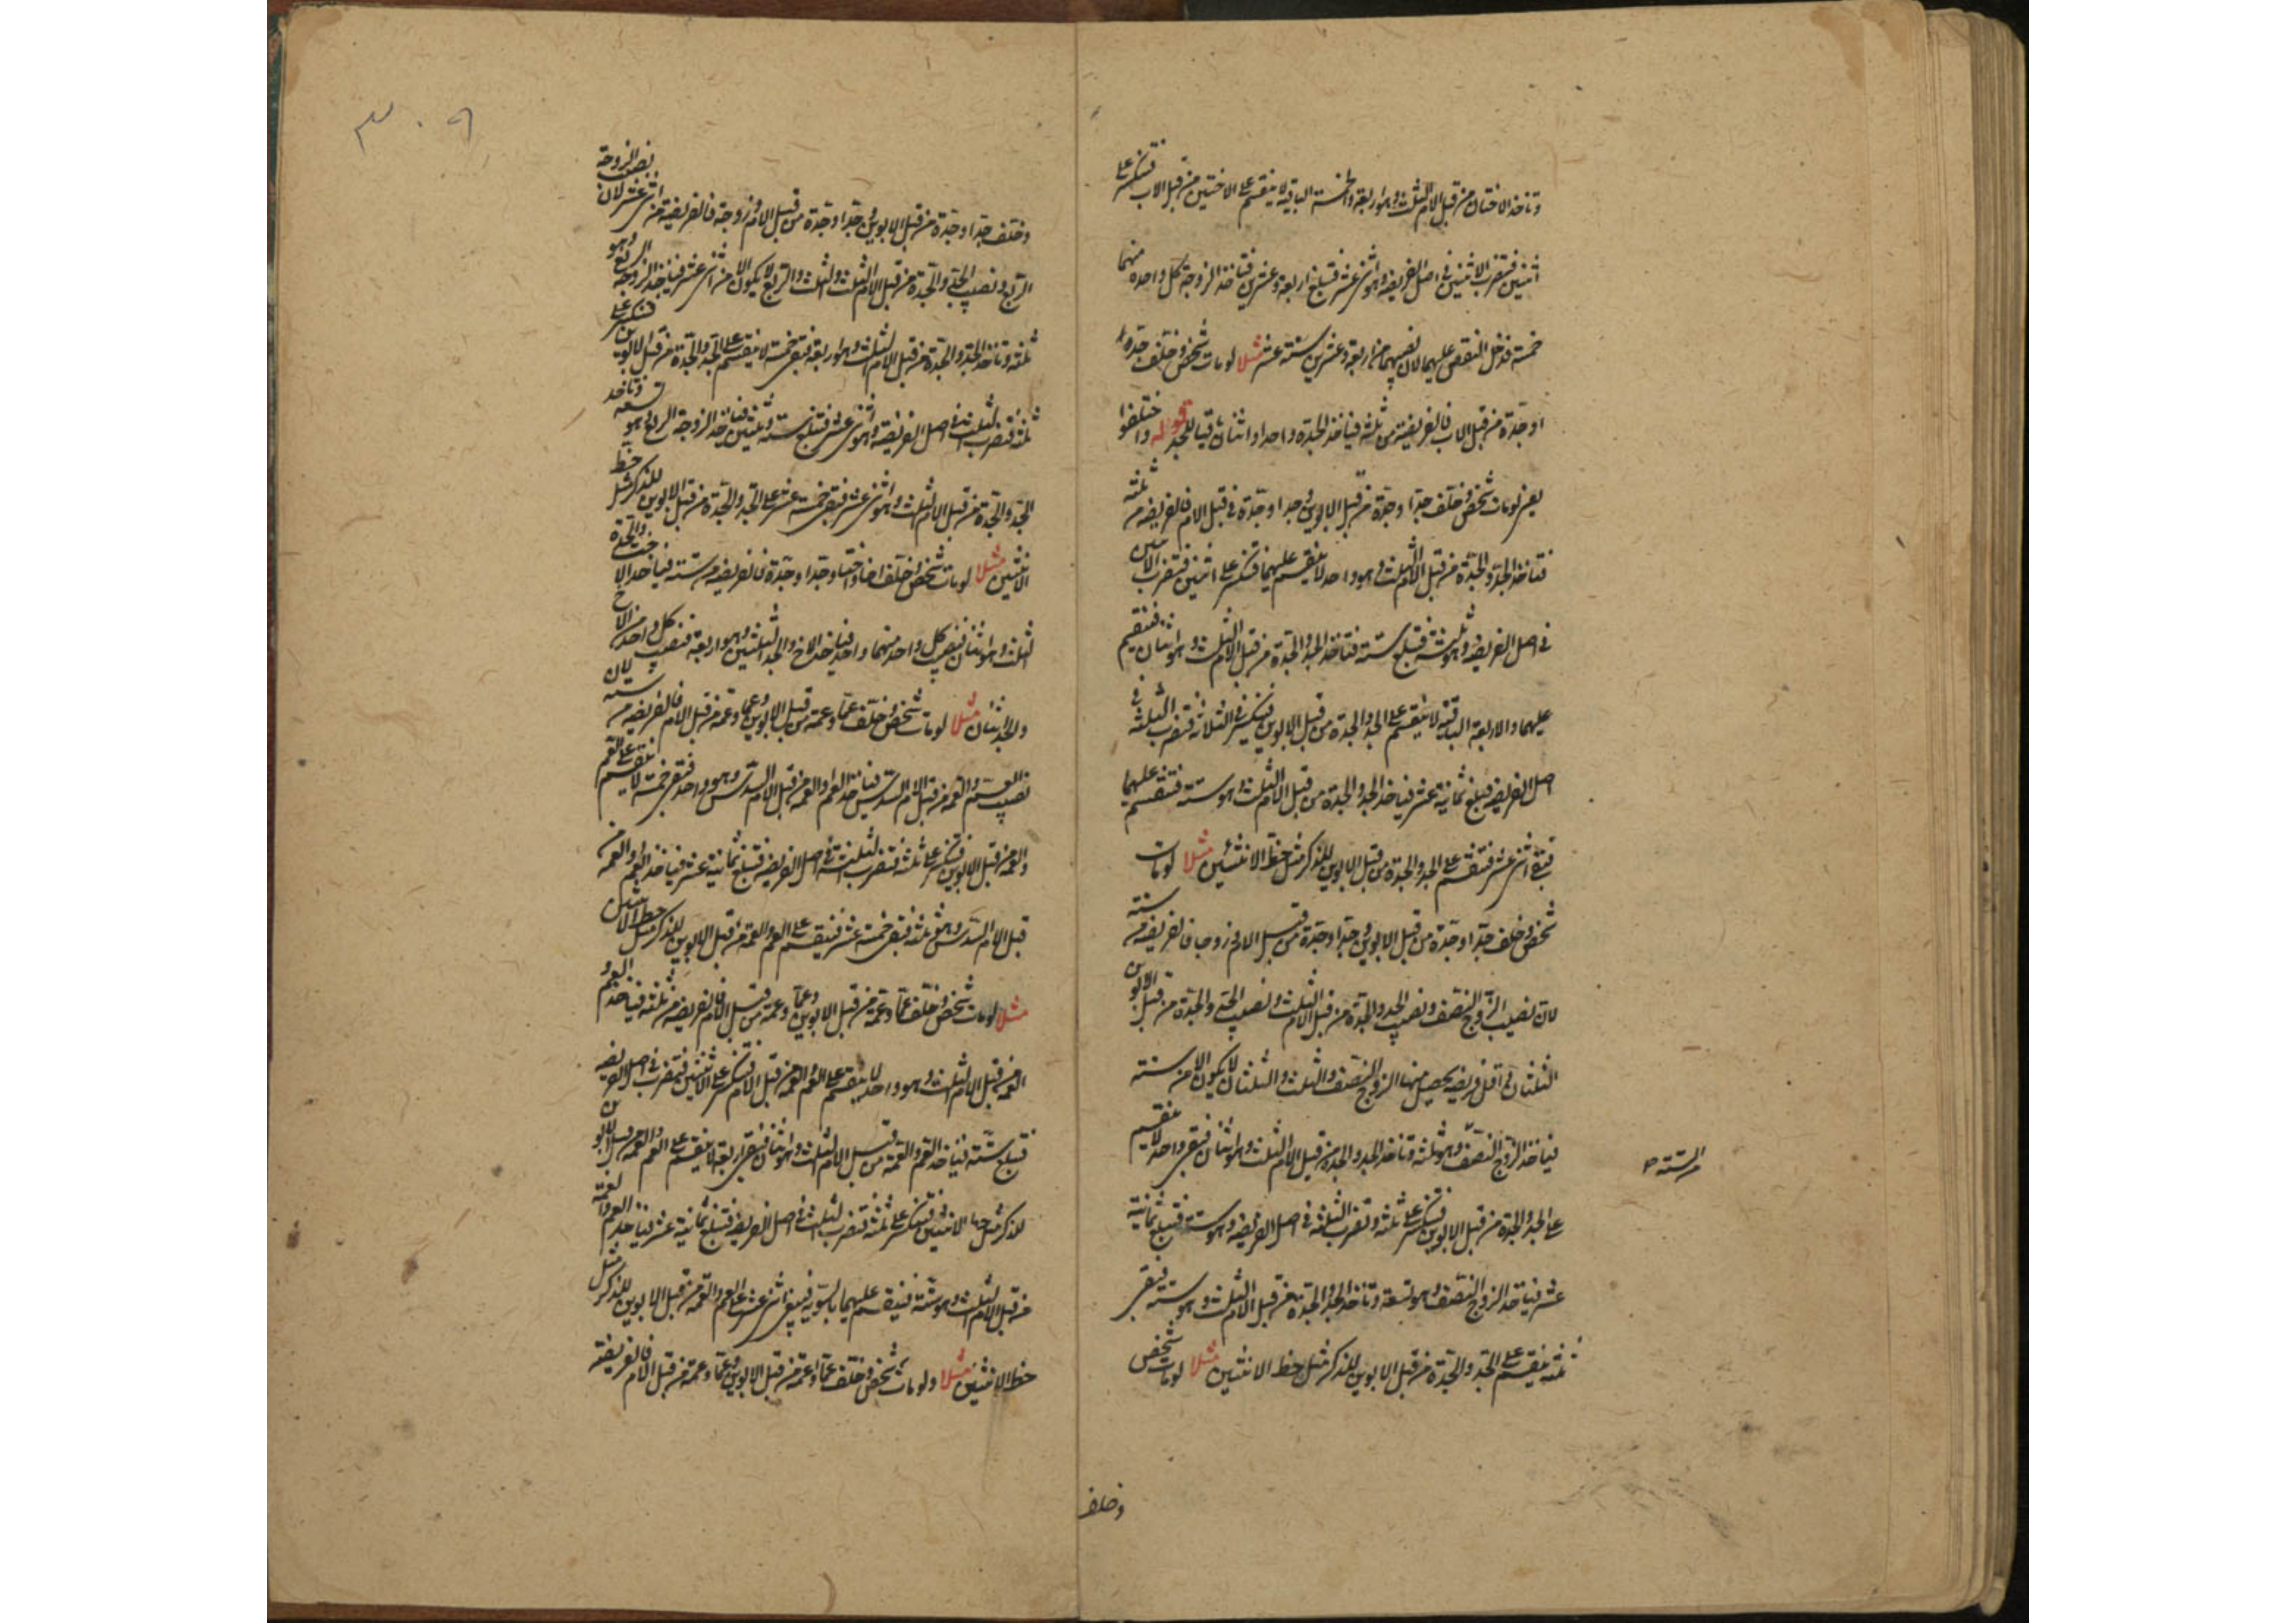 وتاخذ الاختان من قبل الام الثلث وهو اربعة والخمسة الباقية لا ينقسم على الاختين من قبل الاب فتنكسر على
اثنين فتضرب الاثنين في اصل الفريضة وهو اثنى عشر فتبلغ اربعة وعشرين فتاخذ الزوجة كل واحدة منهما
خمسة فدخل النقص عليهما لان نصيبهما من اربعة وعشرين ستة عشر مثلا لو مات شخص وخلف جدة
او جدة من قبل الاب فالفريضة من ثلثة فياخذ الجدة واحدا واثنان باقيا للجد قوله واختلفوا
يعني لو مات شخص وخلف جدا وجدة من قبل الابوين وجدا وجدة من قبل الام فالفريضة من ثلثة
فتاخذ الجد والجدة من قبل الام الثلث وهو واحد لا ينقسم عليهما فتنكسر على اثنين فتضرب الاثنين
في اصل الفريضة وهو ثلثة فتبلغ ستة فتاخذ الجد والجدة من قبل الام الثلث وهو اثنان فتنقسم
عليهما والاربعة الباقية لا ينقسم على الجد والجدة من قبل الابوين فتنكسر في الثلاثة فتضرب الثلثة في
اصل الفريضة فتبلغ ثمانية عشر فياخذ الجد والجدة من قبل الام الثلث وهو ستة فتنقسم عليهما
فتبقى اثنى عشر فتنقسم على الجد والجدة من قبل الابوين للذكر مثل حظ الانثيين مثلا لو مات
شخص وخلف جدا وجدة من قبل الابوين وجدا وجدة من قبل الام وزوجا فالفريضة من ستة
لان نصيب الزوج النصف ونصيب الجد والجدة من قبل الام الثلث ونصيب الجد والجدة من قبل الابوين
الثلثان واقل فريضة يحصل منها الزوج النصف والثلث والثلثان لا يكون الا من ستة
فياخذ الزوج النصف وهو ثلثة وتاخذ الجد والجدة من قبل الام الثلث وهو اثنان فتبقى واحد لا ينقسم
من الستة
على الجد والجدة من قبل الابوين فتنكسر على ثلثة وتضرب الثلثة في اصل الفريضة وهو ستة فتبلغ ثمانية
عشر فياخذ الزوج النصف وهو تسعة وتاخذ الجد والجدة من قبل الام الثلث وهو ستة فيبقى
ثلثة ينقسم على الجد والجدة من قبل الابوين للذكر مثل حظ الانثيين مثلا لو مات شخص
وخلف
٣٠٩
وخلف جدا وجدة من قبل الابوين وجدا وجدة من قبل الام وزوجة فالفريضة من اثنى عشر لان نصف الزوجة
الربع ونصيب الجد والجدة من قبل الام الثلث والثلث والربع لا يكون الا من اثنى عشر فياخذ الزوجة الربع وهو
ثلثة وتاخذ الجد والجدة من قبل الام الثلث وهو اربعة فتبقى خمسة لا ينقسم على الجد والجدة من قبل الابوين فتنكسر على
ثلثة فتضرب الثلثة في اصل الفريضة وهو اثنى عشر فتبلغ ستة وثلثين فياخذ الزوجة الربع وهو تسعة وتاخذ
الجد والجدة من قبل الام الثلث وهو اثنى عشر فتبقى خمسة عشر على الجد والجدة من قبل الابوين للذكر مثل حظ
الانثيين مثلا لو مات شخص وخلف اخا واختا وجدا وجدة فالفريضة من ستة فياخذ الاخت والجدة
الثلث وهو اثنان نصيب كل واحد منهما واحد فياخذ الاخ والجد الثلثين وهو اربعة فنصيب كل واحد من الاخ
والجد اثنان مثلا لو مات شخص وخلف عما وعمة من قبل الابوين وعما وعمة من قبل الام فالفريضة من ستة لان
نصيب العم والعمة من قبل الام السدس فياخذ العم والعمة من قبل الام السدس وهو واحد فتبقى خمسة لا ينقسم على العم
والعمة من قبل الابوين فتنكسر على ثلثة فتضرب الثلثة في اصل الفريضة فتبلغ ثمانية عشر فياخذ العم والعمة من
قبل الام السدس وهو ثلثة فتبقى خمسة عشر فينقسم على العم والعمة من قبل الابوين للذكر مثل حظ الانثيين
مثلا لو مات شخص وخلف عما وعمة من قبل الابوين وعما وعمة من قبل الام فالفريضة من ثلثة فياخذ العم و
العمة من قبل الام الثلث وهو واحد لا ينقسم على العم والعمة من قبل الام فتنكسر على الاثنين فتضرب في اصل الفريضة
فتبلغ ستة فياخذ العم والعمة من قبل الام الثلث وهو اثنان فتبقى اربعة لا ينقسم على العم والعمة من قبل الابوين
للذكر مثل حظ الانثيين فتنكسر على ثلثة فتضرب الثلثة في اصل الفريضة فتبلغ ثمانية عشر فياخذ العم والعمة
من قبل الام الثلث وهو ستة فينقسم عليهما بالسوية فيبقى اثنى عشر على العم والعمة من قبل الابوين للذكر مثل
حظ الانثيين مثلا ولو مات شخص وخلف عما وعمة من قبل الابوين وعما وعمة من قبل الام فالفريضة